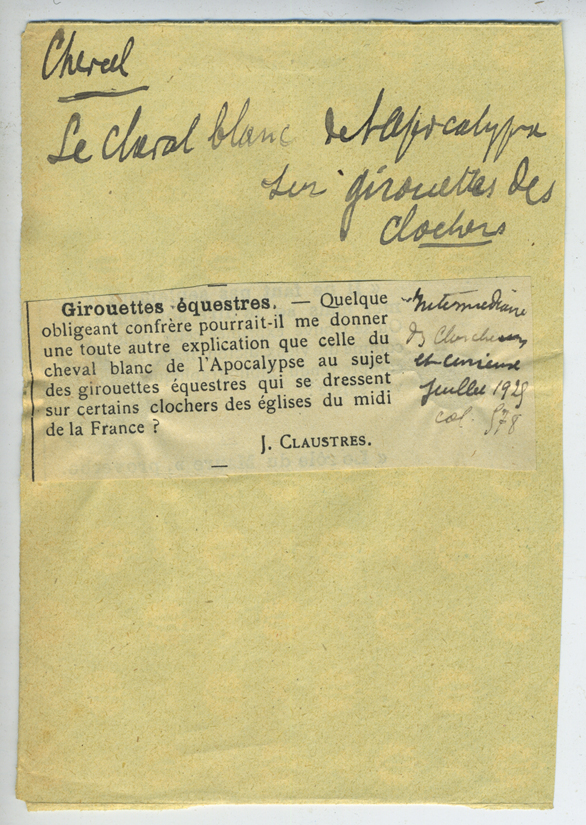 Cheval
Le cheval blanc de l'Apocalypse
sur girouettes des
clochers
Girouettes équestres. — Quelque
obligeant confrère pourrait-il me donner
une toute autre explication que celle du
cheval blanc de l'Apocalypse au sujet
des girouettes équestres qui se dressent
sur certains clochers des églises du midi
de la France ?
J. CLAUSTRES.
Intermédiaire
des Chercheurs
et curieux
Juillet 1925
col. 578